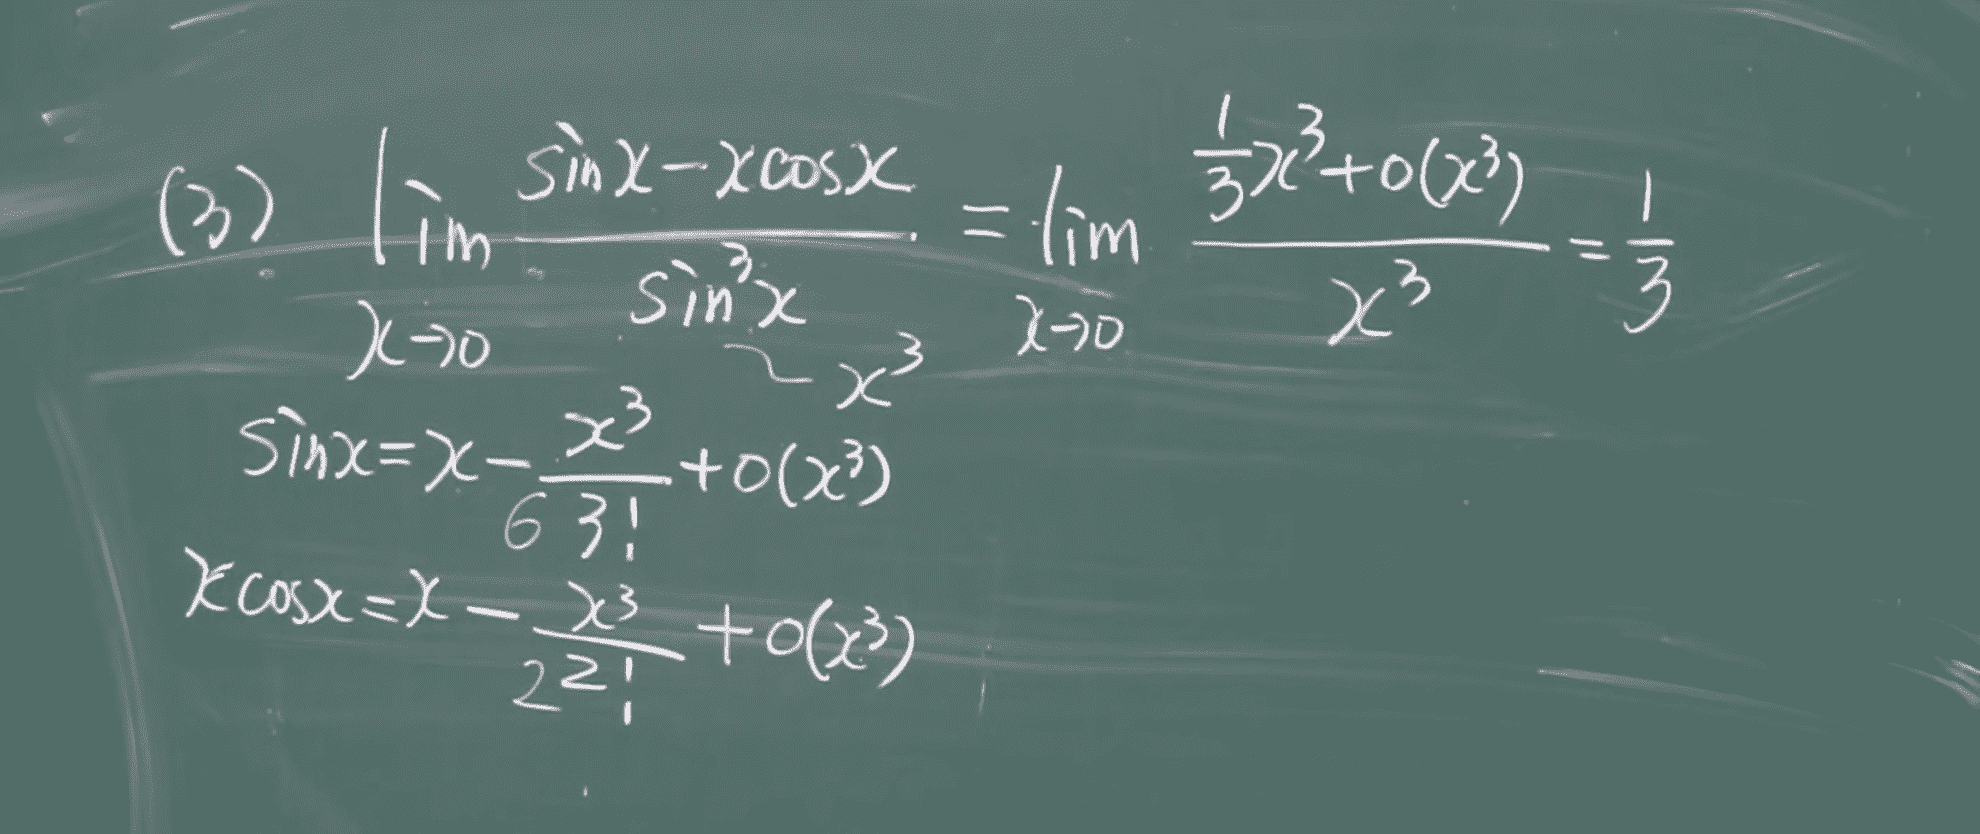 (3) lim x→0 (sinx-xcosx)/(sin³x) = lim x→0 (1/3 x³+o(x³))/(x³) = 1/3
~ x³
sinx=x-x³/3!+o(x³) 6
xcosx=x-x³/2!+o(x³) 2